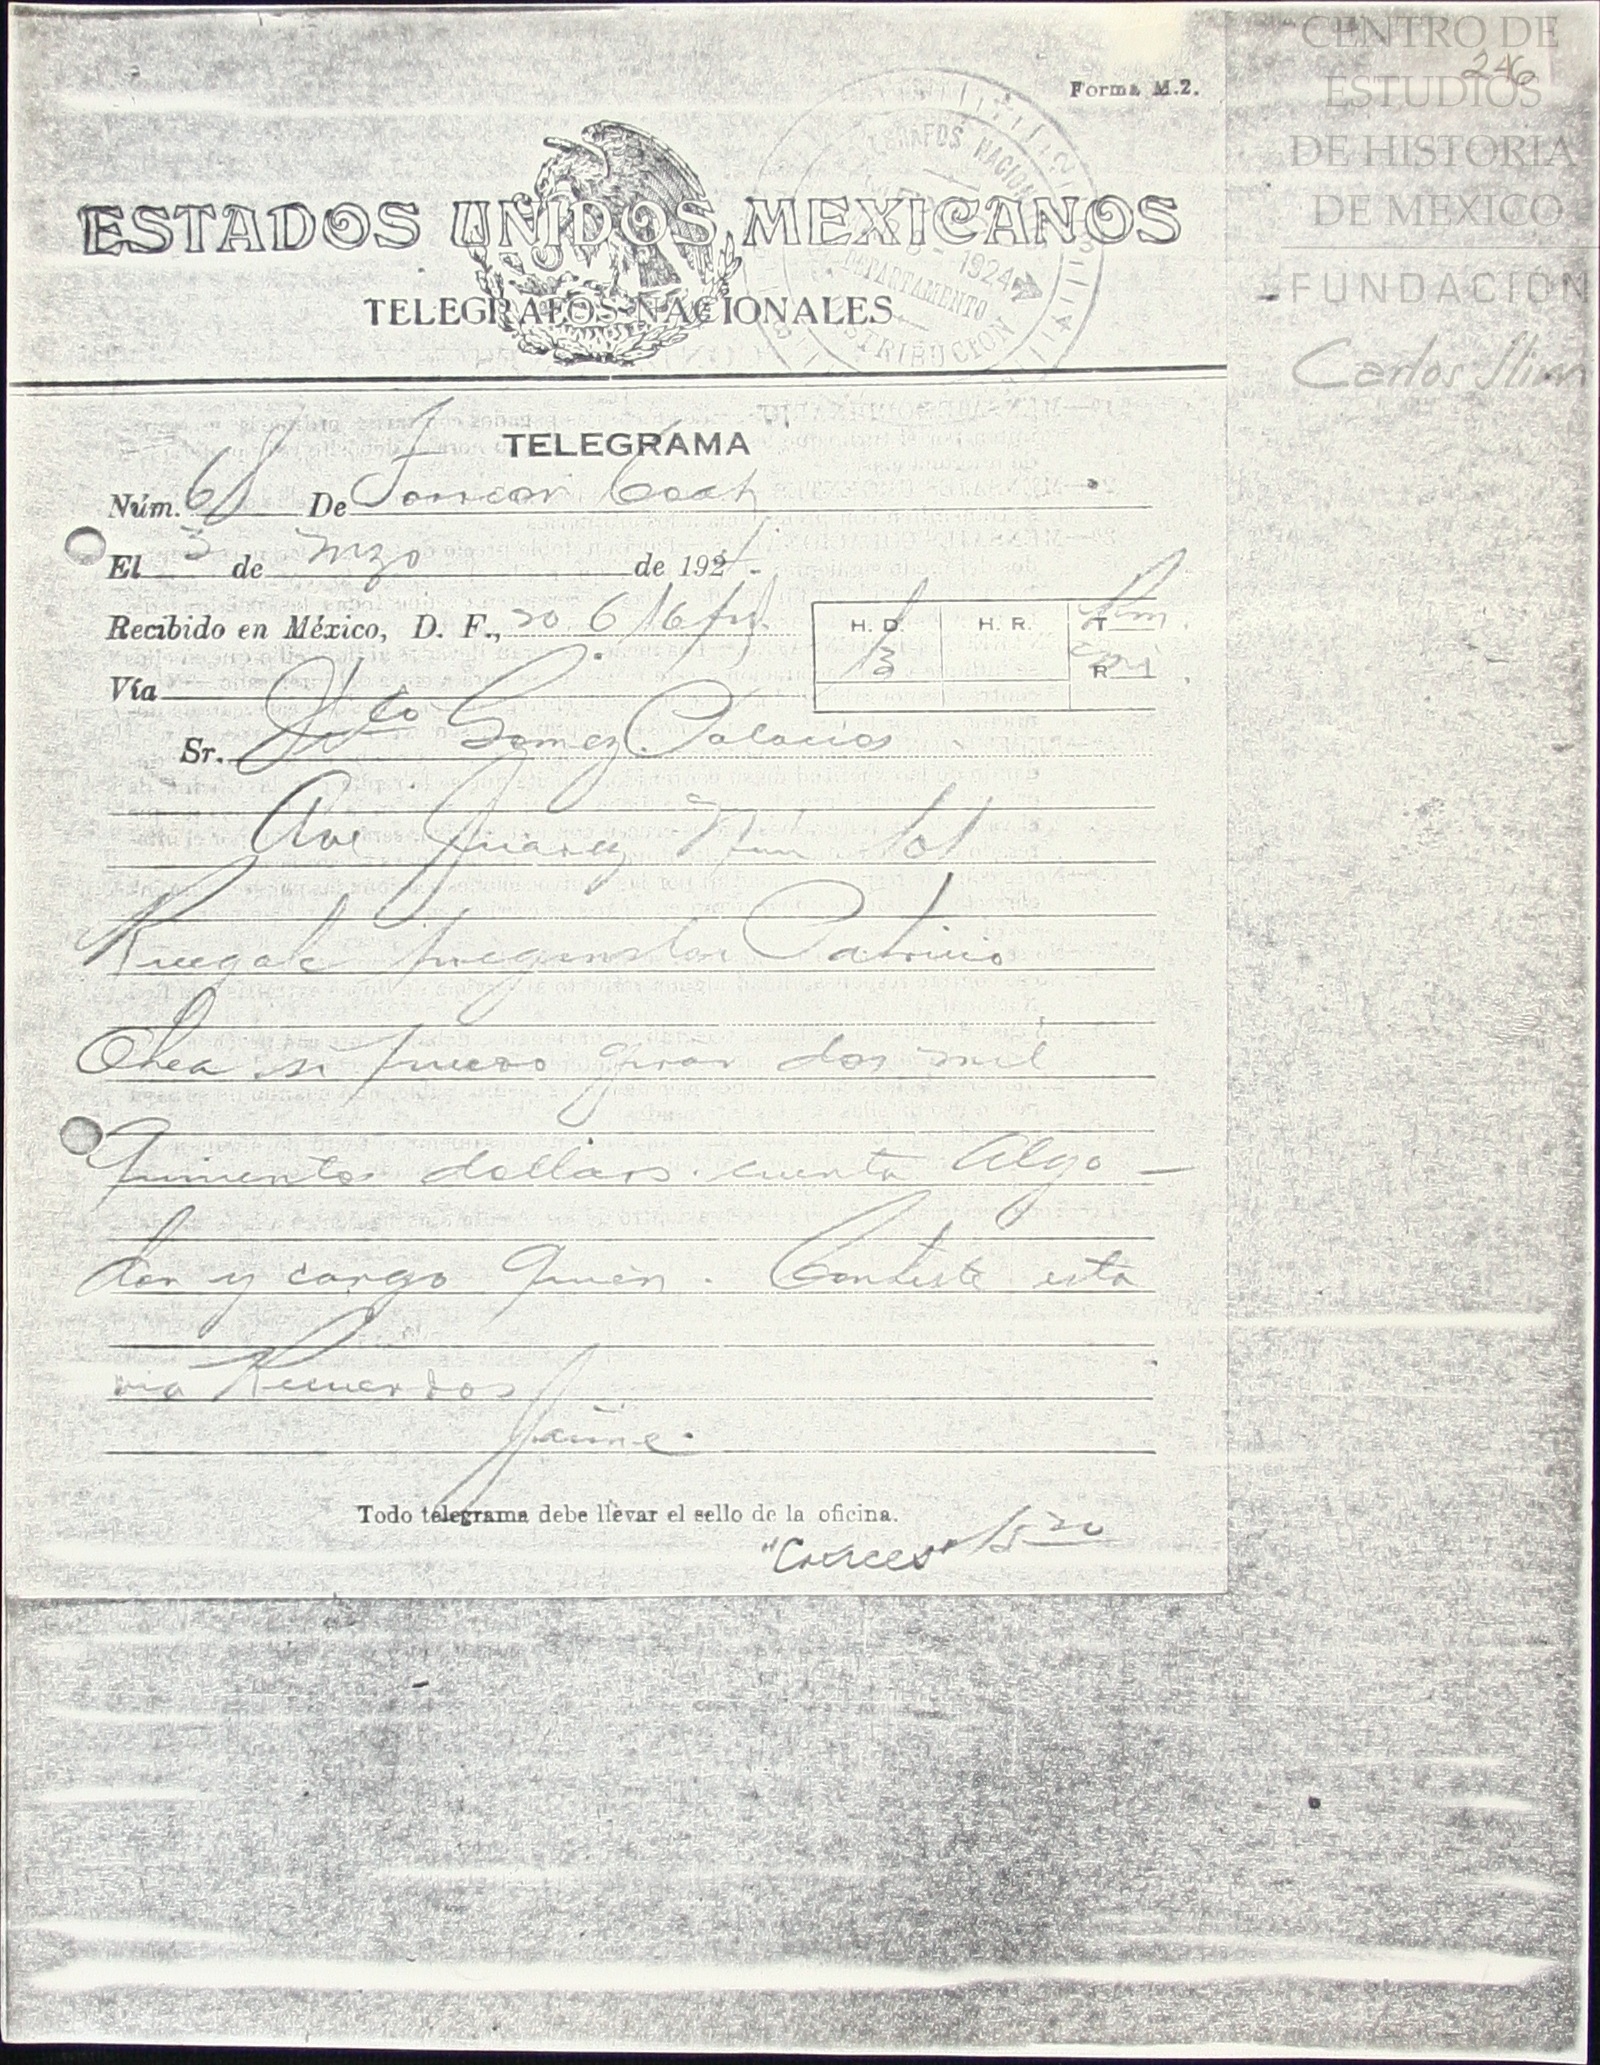 CENTRO DE
ESTUDIOS
DE HISTORIA
DE MEXICO
FUNDACIÓN
Carlos Slim
246
Forma M.2.
TELEGRAFOS NACIONALES
1924
DEPARTAMENTO
DISTRIBUCION
ESTADOS UNIDOS MEXICANOS
TELEGRAFOS NACIONALES
TELEGRAMA
Núm. 61 De Torreon Coah
El 3 de mzo de 1924.
Recibido en México, D. F., 20 6/16
H. D. H. R. T
13 R
Vía
Sr. Gomez Palacios
Ave Juarez Num 101
Ruegole preguntar Patricio
Chea si puedo girar dos mil
quinientos dollars cuenta Algo-
don y cargo quien. Conteste esta
via Recuerdos
Jaime.
Todo telegrama debe llevar el sello de la oficina.